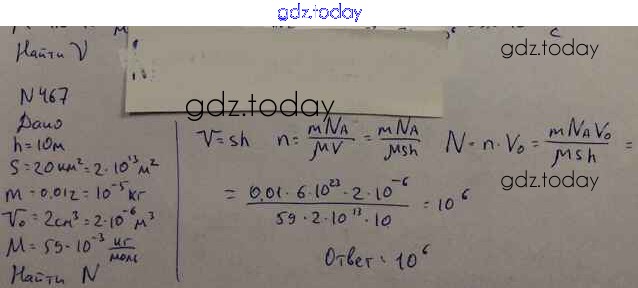 gdz.today
Найти V
gdz.today
N 467
gdz.today
Дано
h = 10м
S = 20км² = 2·10¹³м²
m = 0,01г = 10⁻⁵ кг
V₀ = 2см³ = 2·10⁻⁶ м³
M = 59·10⁻³ кг/моль
Найти N
V = sh n = mNA/μV = mNA/μsh N = n·V₀ = mNAV₀/μsh =
gdz.today
= 0,01·6·10²³·2·10⁻⁶/59·2·10¹³·10 = 10⁶
Ответ: 10⁶